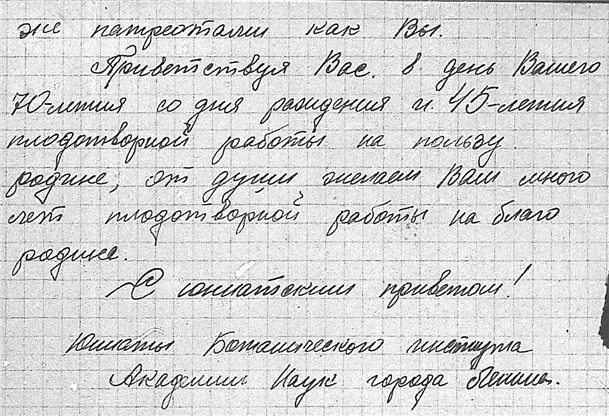 же патреотами как Вы.
Приветствуя Вас, в день Вашего
70-летия со дня рождения и 45-летия
плодотворной работы на пользу
родине, от души желаем Вам много
лет плодотворной работы на благо
родине.
С юнатским приветом!
Юннаты Ботанического института
Академии Наук города